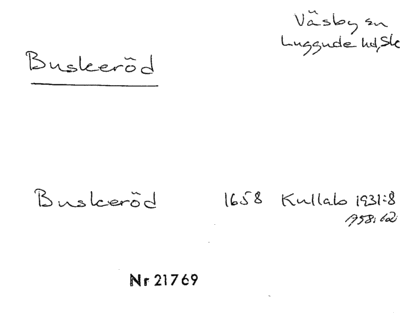 Väsby sn
Luggude hd, Sk
Buskeröd
Buskeröd 1658 Kullab 1931:8
1958:62
Nr 21769